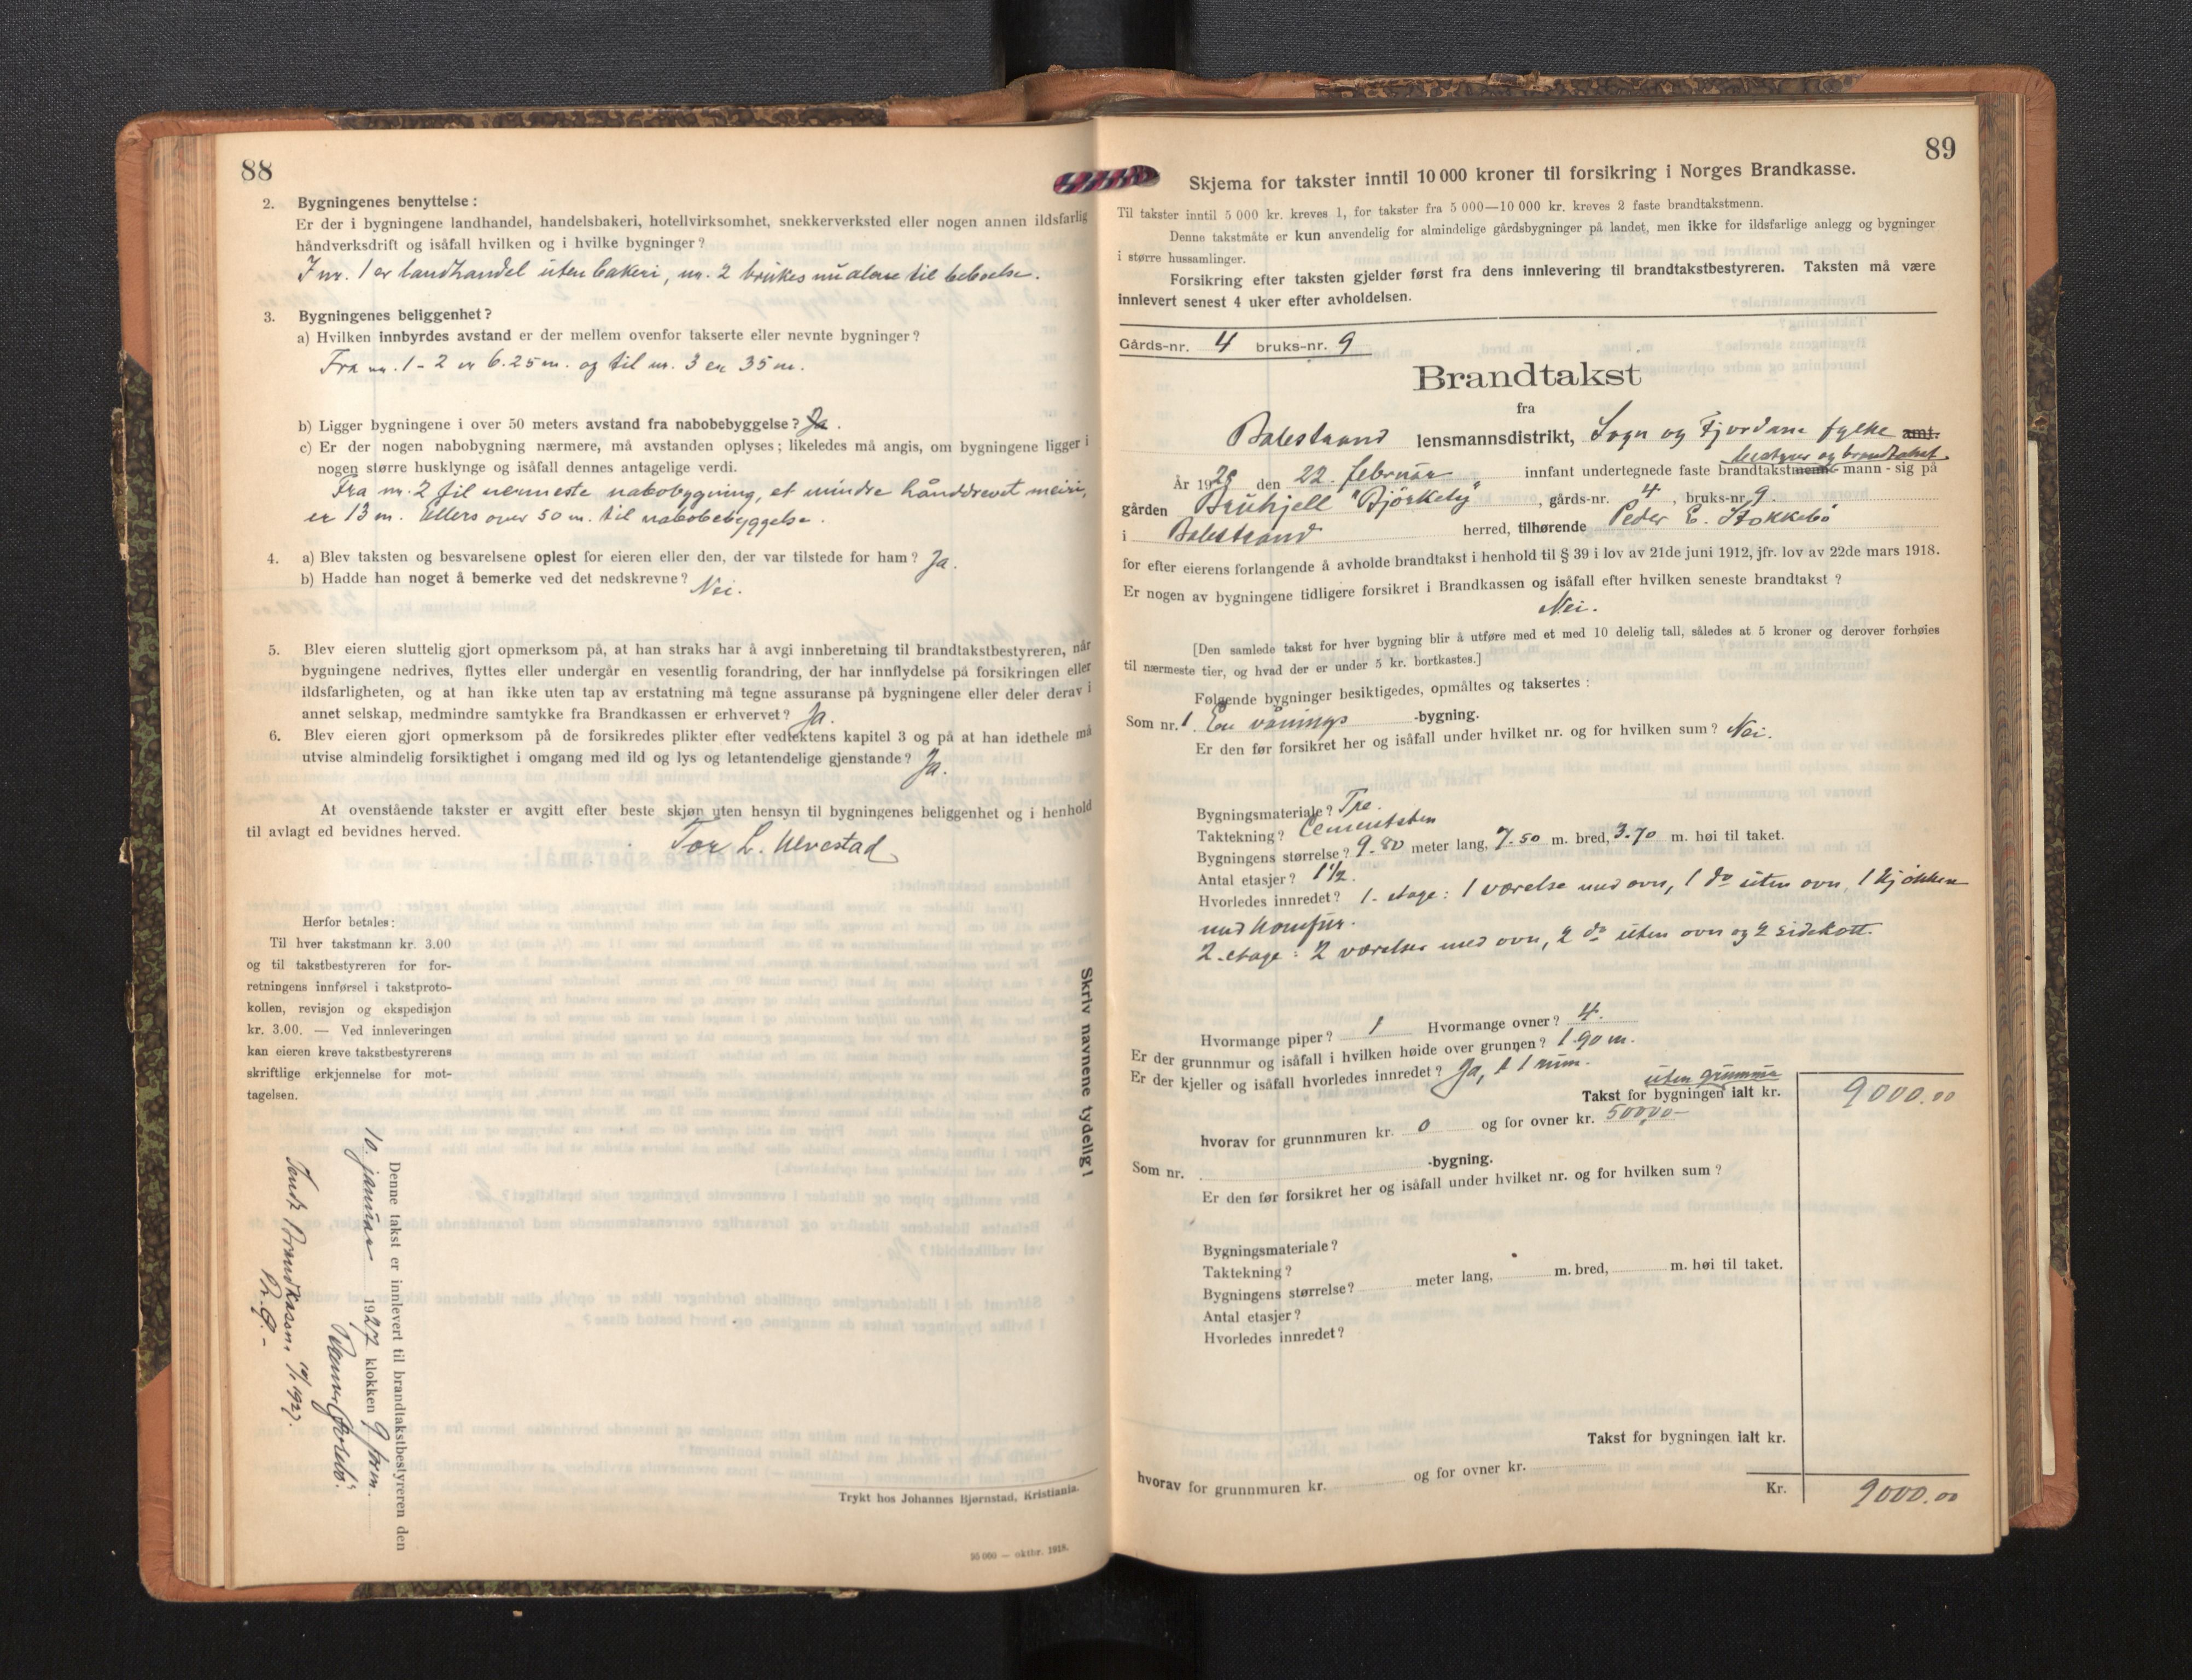 88
2. Bygningenes benyttelse :
Er der i bygningene landhandel, handelsbakeri, hotellvirksomhet, snekkerverksted eller nogen annen ildsfarlig
håndverksdrift og isåfall hvilken og i hvilke bygninger?
I nr. 1 er landhandel uten bakeri, nr. 2 brukes nu alene til beboelse.
3. Bygningenes beliggenhet?
a) Hvilken innbyrdes avstand er der mellem ovenfor takserte eller nevnte bygninger?
Fra nr. 1 - 2 er 6.25 m. og til nr. 3 er 35 m.
b) Ligger bygningene i over 50 meters avstand fra nabobebyggelse? Ja.
c) Er der nogen nabobygning nærmere, må avstanden oplyses; likeledes må angis, om bygningene ligger i
nogen større husklynge og isåfall dennes antagelige verdi.
Fra nr. 2 til nermeste nabobygning, et mindre hånddrevet meieri,
er 13 m. Ellers over 50 m. til nabobebyggelse.
4. a) Blev taksten og besvarelsene oplest for eieren eller den, der var tilstede for ham? Ja.
b) Hadde han noget å bemerke ved det nedskrevne? Nei.
5. Blev eieren sluttelig gjort opmerksom på, at han straks har å avgi innberetning til brandtakstbestyreren, når
bygningene nedrives, flyttes eller undergår en vesentlig forandring, der har innflydelse på forsikringen eller
ildsfarligheten, og at han ikke uten tap av erstatning må tegne assuranse på bygningene eller deler derav i
annet selskap, medmindre samtykke fra Brandkassen er erhvervet? Ja.
6. Blev eieren gjort opmerksom på de forsikredes plikter efter vedtektens kapitel 3 og på at han idethele må
utvise almindelig forsiktighet i omgang med ild og lys og letantendelige gjenstande? Ja.
At ovenstående takster er avgitt efter beste skjøn uten hensyn til bygningenes beliggenhet og i henhold
til avlagt ed bevidnes herved.
Tor L. Ulvestad
Herfor betales:
Til hver takstmann kr. 3.00
og til takstbestyreren for for-
retningens innførsel i takstproto-
kollen, revisjon og ekspedisjon
kr. 3.00. — Ved innleveringen
kan eieren kreve takstbestyrerens
skriftlige erkjennelse for mot-
tagelsen.
Skriv navnene tydelig!
Denne takst er innlevert til brandtakstbestyreren den
10. januar 1927 klokken 9 form.
Brandkassen 10/1 1927.
Trykt hos Johannes Bjørnstad, Kristiania.
95 000 — oktbr. 1918.
89
Skjema for takster inntil 10 000 kroner til forsikring i Norges Brandkasse.
Til takster inntil 5 000 kr. kreves 1, for takster fra 5 000—10 000 kr. kreves 2 faste brandtakstmenn.
Denne takstmåte er kun anvendelig for almindelige gårdsbygninger på landet, men ikke for ildsfarlige anlegg og bygninger
i større hussamlinger.
Forsikring efter taksten gjelder først fra dens innlevering til brandtakstbestyreren. Taksten må være
innlevert senest 4 uker efter avholdelsen.
Gårds-nr. 4 bruks-nr. 9
Brandtakst
fra
Balestrand lensmannsdistrikt, Sogn og Fjordane fylke amt.
bestyrer og brandtakst
År 1928 den 22. februar innfant undertegnede faste brandtakstmenn - mann - sig på
gården Bruhjell "Björkely", gårds-nr. 4, bruks-nr. 9.
i Balestrand herred, tilhørende Peder E. Stokkebö
for efter eierens forlangende å avholde brandtakst i henhold til § 39 i lov av 21de juni 1912, jfr. lov av 22de mars 1918.
Er nogen av bygningene tidligere forsikret i Brandkassen og isåfall efter hvilken seneste brandtakst ?
Nei.
[Den samlede takst for hver bygning blir å utføre med et med 10 delelig tall, således at 5 kroner og derover forhøies
til nærmeste tier, og hvad der er under 5 kr. bortkastes.]
Følgende bygninger besiktigedes, opmåltes og taksertes :
Som nr. 1. En vånings -bygning.
Er den før forsikret her og isåfall under hvilket nr. og for hvilken sum? Nei.
Bygningsmateriale? Tre.
Taktekning? Cementsten
Bygningens størrelse? 9.80 meter lang, 7.50 m. bred, 3.70 m. høi til taket.
Antal etasjer? 1½.
Hvorledes innredet? 1. etage: 1 værelse med ovn, 1 do uten ovn, 1 kjökken
med komfur.
2. etage: 2 værelser med ovn, 2 do uten ovn og 2 sidekott.
Hvormange piper? 1 Hvormange ovner? 4.
Er der grunnmur og isåfall i hvilken høide over grunnen? 1.90 m.
Er der kjeller og isåfall hvorledes innredet? Ja, i 1 rum.
uten grunnmur
Takst for bygningen ialt kr. 9000.00
hvorav for grunnmuren kr. 0 og for ovner kr. 500.00 -
Som nr. -bygning.
Er den før forsikret her og isåfall under hvilket nr. og for hvilken sum?
Bygningsmateriale?
Taktekning?
Bygningens størrelse? meter lang, m. bred, m. høi til taket.
Antal etasjer?
Hvorledes innredet?
Takst for bygningen ialt kr.
hvorav for grunnmuren kr. og for ovner kr.
Kr. 9000.00